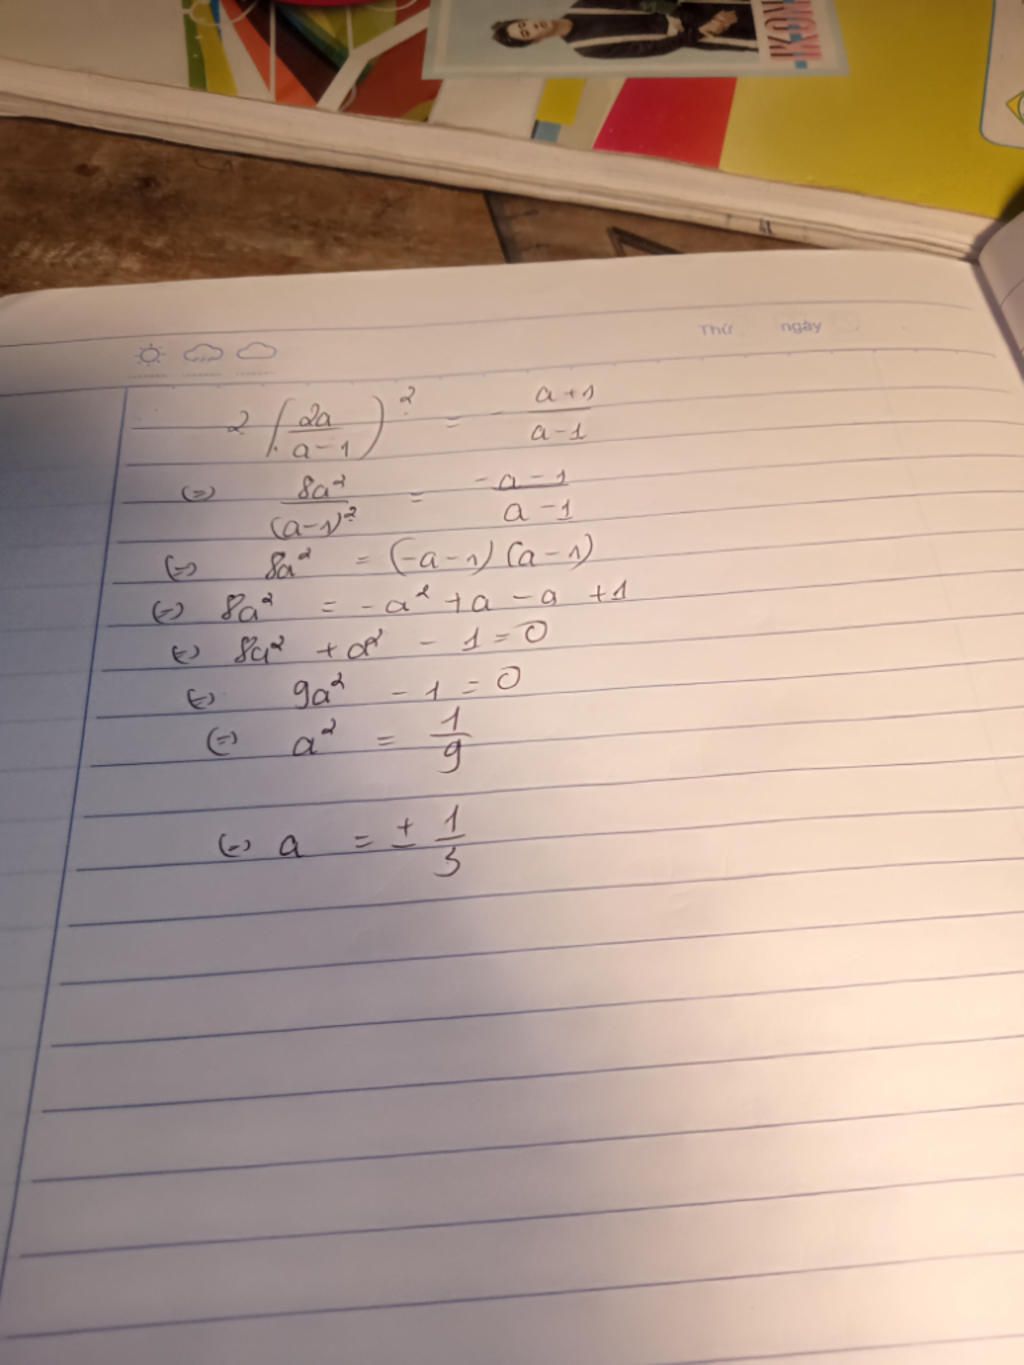 IKON
Thứ ngày
2 (2a/(a-1))² = - (a+1)/(a-1)
(=) 8a²/(a-1)² = (-a-1)/(a-1)
(=) 8a² = (-a-1)(a-1)
(=) 8a² = -a² + a - a + 1
(=) 8a² + a² - 1 = 0
(=) 9a² - 1 = 0
(=) a² = 1/9
(=) a = ± 1/3